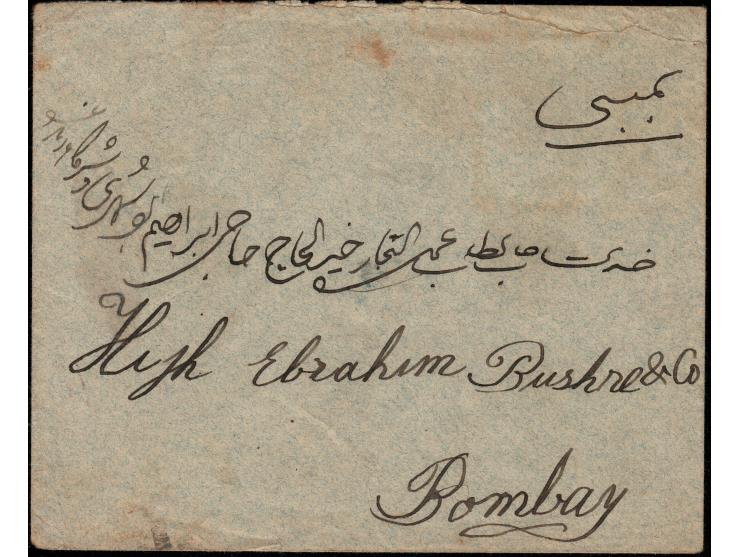 بمبئی
خدمت جناب عمدة التجار خیر الحاج حاجی ابراهیم بوشهری و شرکاء
Hijh Ebrahim Bushre & Co
Bombay